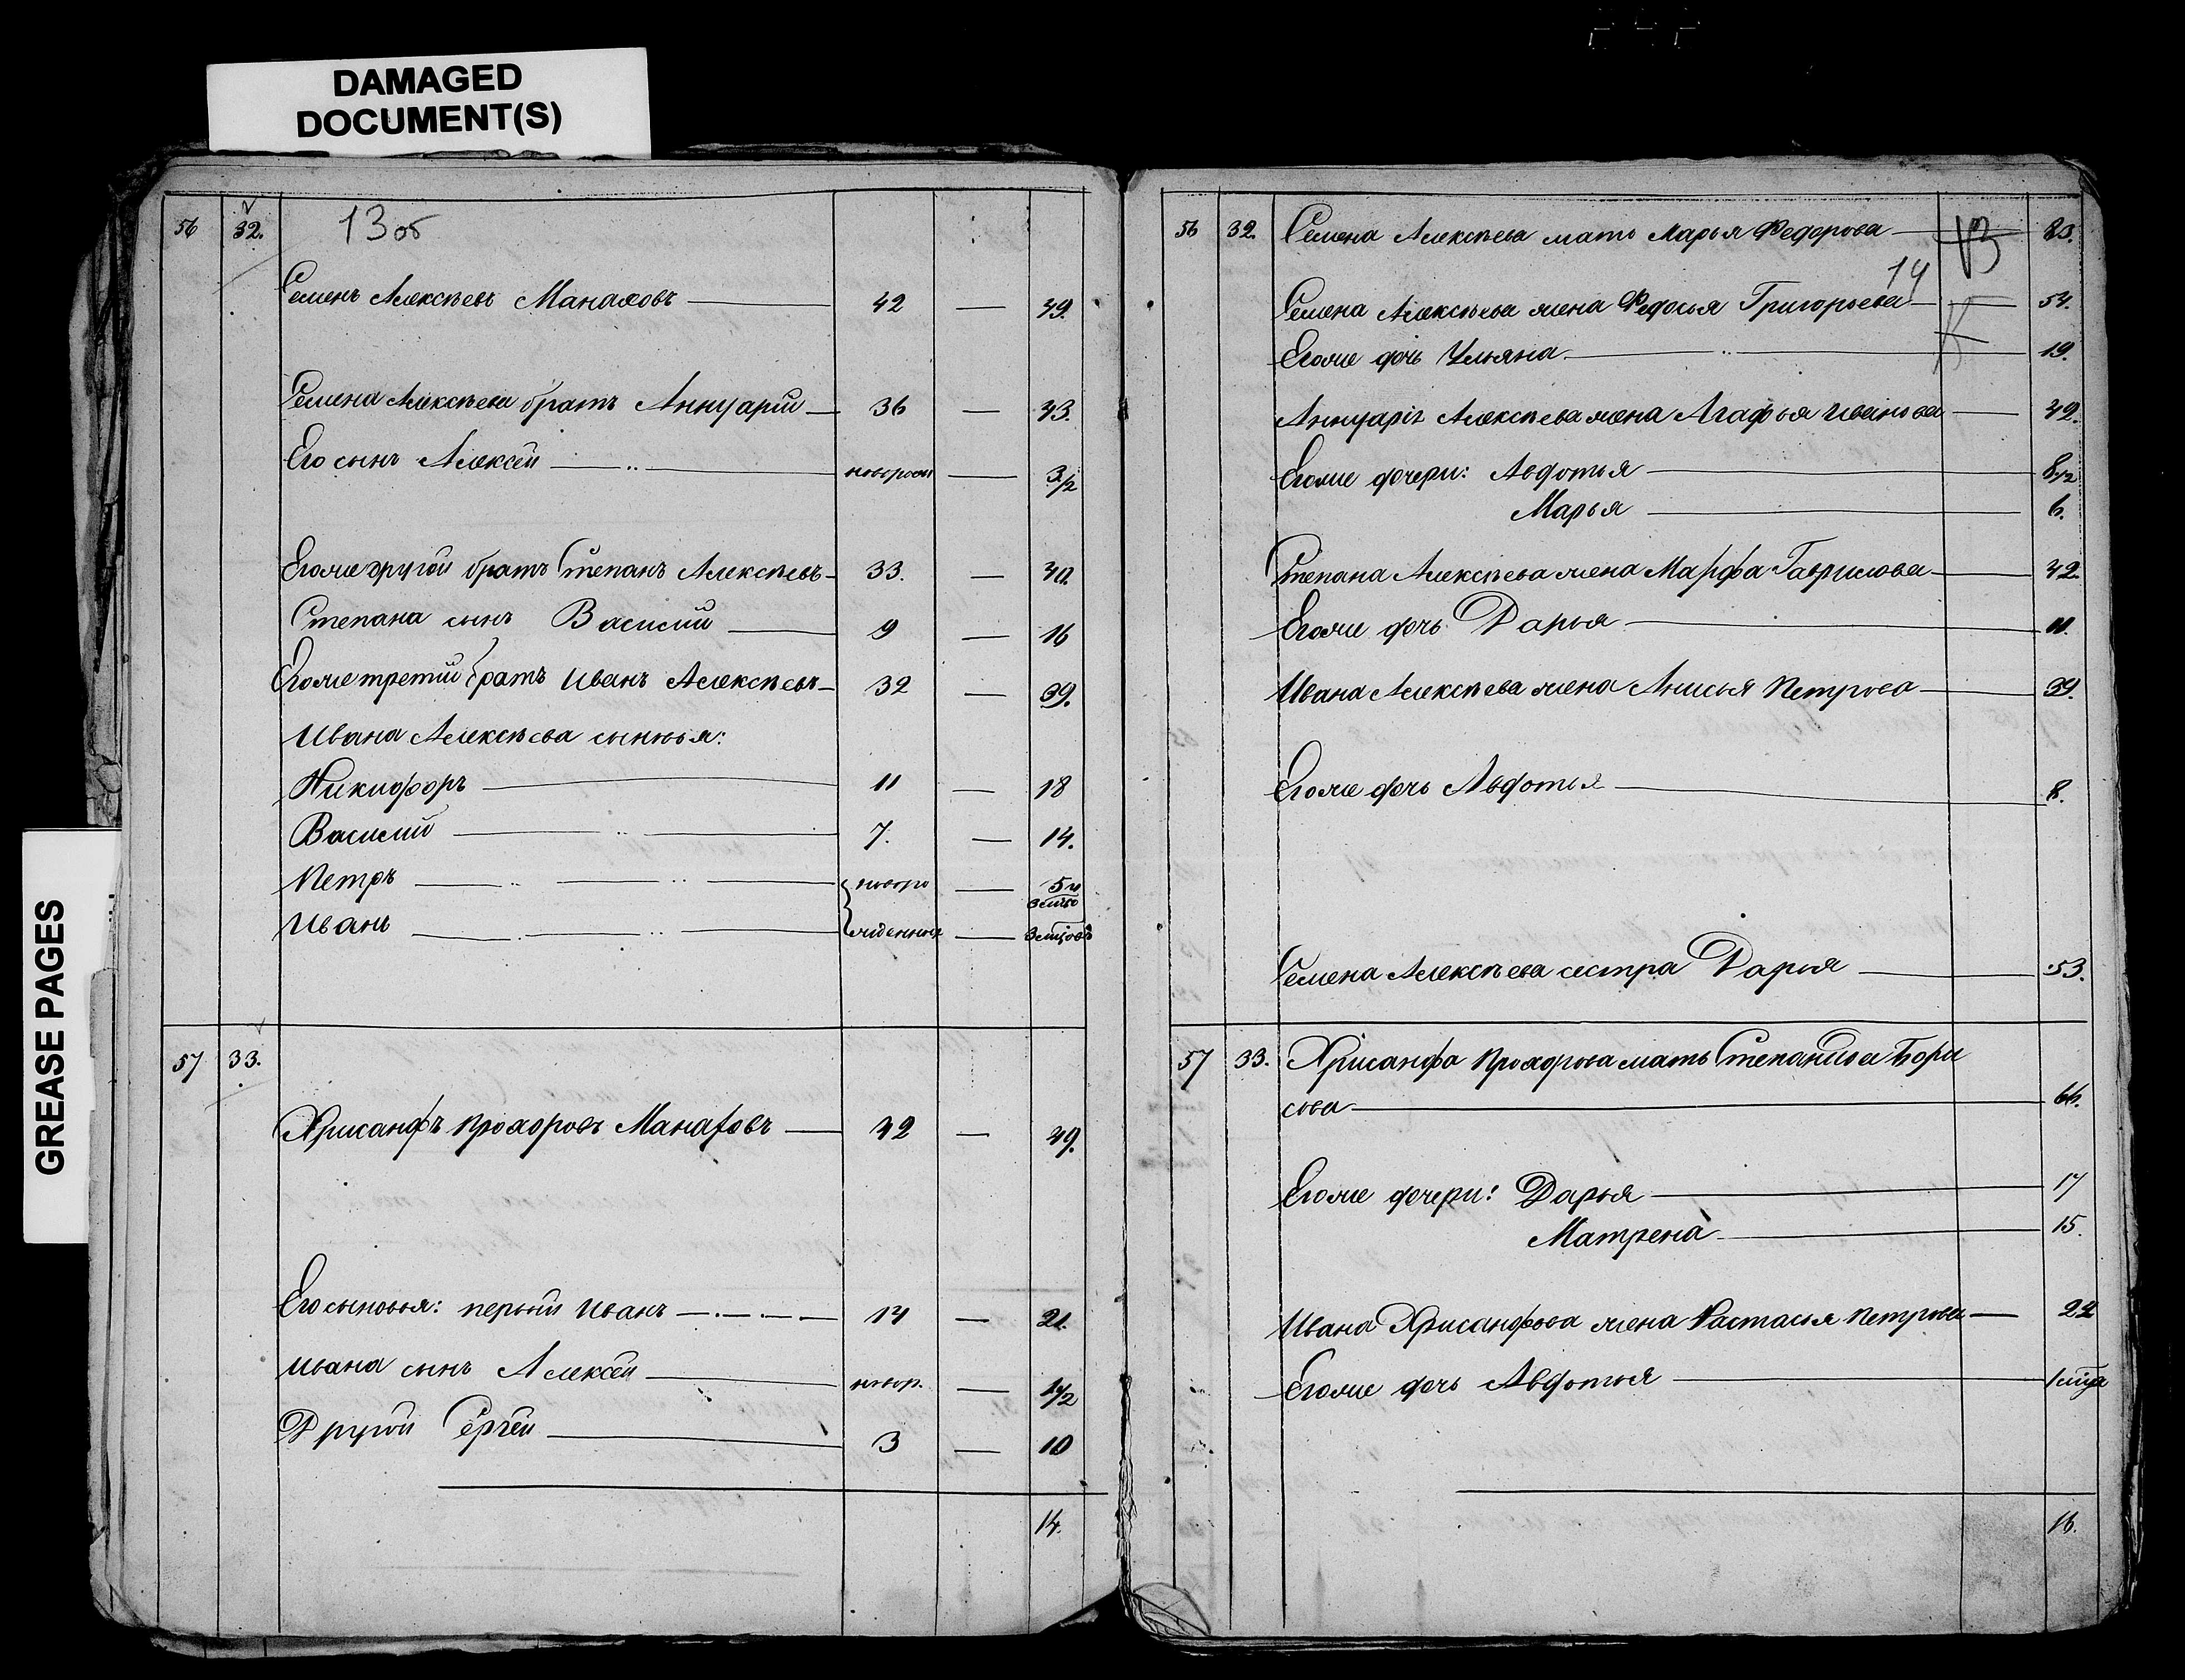 DAMAGED
DOCUMENT(S)
GREASE PAGES
56 32. 13 об
Семенъ Алексѣевъ Манаховъ 42 — 49.
Семена Алексѣева братъ Аннуарій 36 — 43.
Его сынъ Алексѣй новорожд — 3 1/2
Егоже другой братъ Степанъ Алексѣевъ 33. — 40.
Степана сынъ Василій 9 — 16
Егоже третій братъ Иванъ Алексѣевъ 32 — 39.
Ивана Алексѣева сыновья:
Никифоръ 11 — 18
Василій 7. — 14.
Петръ новоро — 5 и
Иванъ жденные —
57 33.
Хрисанфъ Прохоровъ Манаховъ 42 — 49.
Его сыновья: первый Иванъ 14 — 21.
Ивана сынъ Алексѣй новор. — 1 1/2
Другой Сергѣй 3 — 10
14.
56 32. Семена Алексѣева мать Марья Федорова 83.
13
14
Семена Алексѣева жена Федосья Григорьева 54.
Егоже дочь Ульяна 19.
Аннуарія Алексѣева жена Агафья Иванова 42.
Егоже дочери: Авдотья 8 1/2
Марья 6.
Степана Алексѣева жена Марфа Гаврилова 42.
Егоже дочь Дарья 11.
Ивана Алексѣева жена Анисья Петрова 39.
Егоже дочь Авдотья 8.
Семена Алексѣева сестра Дарья 53.
57 33. Хрисанфа Прохорова мать Степанида Бори
сова 66.
Егоже дочери: Дарья 17
Матрена 15.
Ивана Хрисанфова жена Настасья Петрова 22
Егоже дочь Авдотья
16.